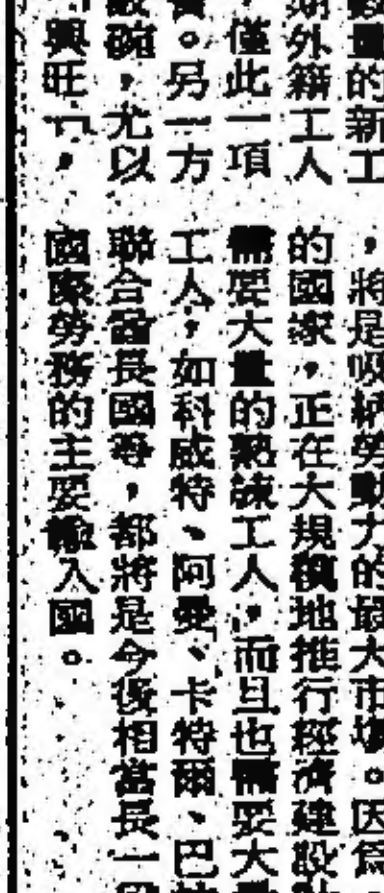 量的新工
外籍工人
僅此一項
。另一方
，尤以
興旺」，
，將是吸納勞動力的最大市場。因爲
的國家，正在大規模地推行經濟建設
需要大量的熟練工人，而且也需要大
工人，如科威特、阿曼、卡特爾、巴
聯合酋長國等，都將是今後相當長一
國際勞務的主要輸入國。